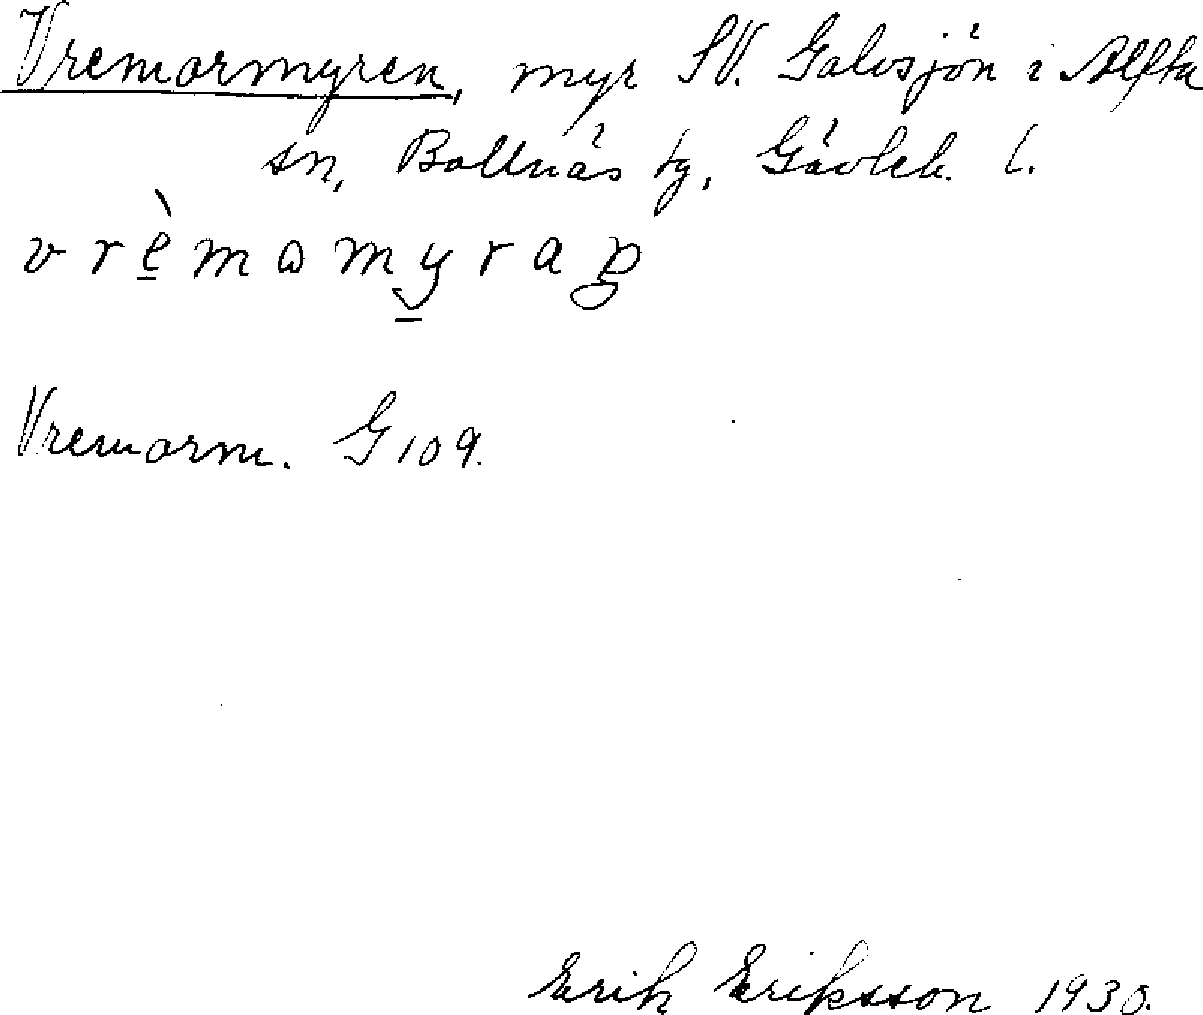 Vremormyren, myr SV. Galvsjön i Alfta
sn, Bollnäs tg, Gävleb. l.
vrèmɷmyraŋ
Vremorm. G109.
Erik Eriksson 1930.